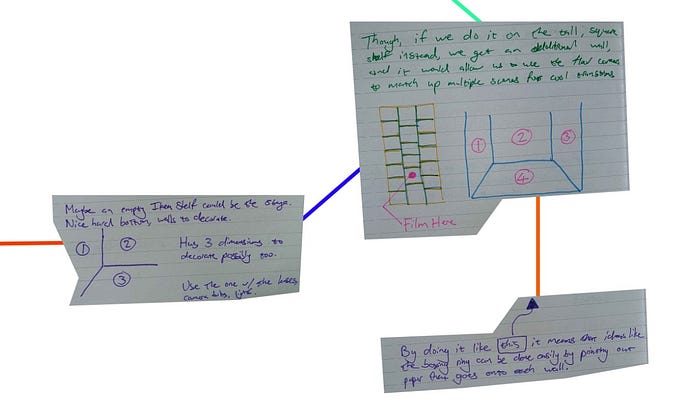 Though, if we do it on the tall, square
shelf instead, we get an additional wall,
and it would allow us to use the four corners
to match up multiple scenes for cool transitions
① ② ③
④
Film Here
Maybe an empty Item Shelf could be the stage.
Nice hard bottom, walls to decorate.
① ②
③
Has 3 dimensions to
decorate possibly too.
Use the one w/ the
camera bits, lights.
By doing it like this it means that ideas like
the boxing ring can be done easily by printing out
paper that goes onto each wall.